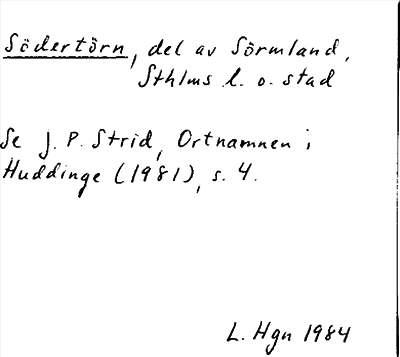 Södertörn, del av Sörmland,
Sthlms l. o. stad
Se J. P. Strid, Ortnamnen i
Huddinge (1981), s. 4.
L. Hgn 1984